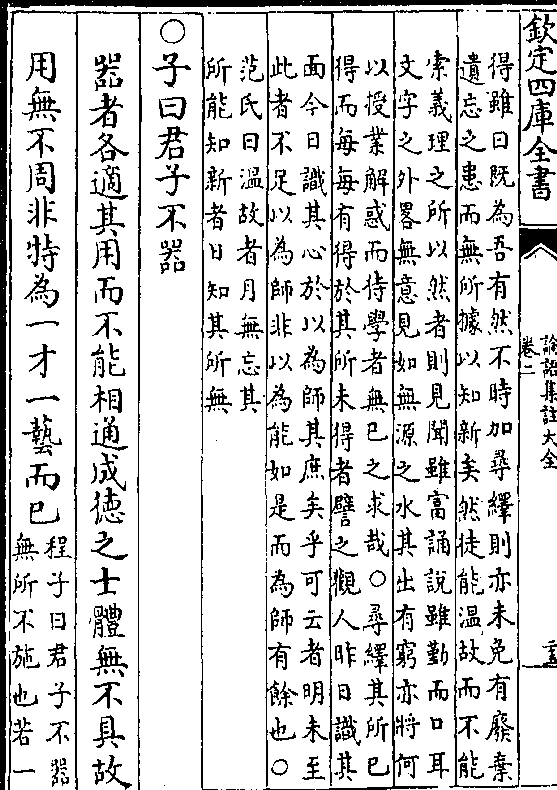 欽定四庫全書
論語集註大全
卷二
得雖曰既為吾有然不時加尋繹則亦未免有廢棄
遺忘之患而無所據以知新矣然徒能溫故而不能
索義理之所以然者則見聞雖富誦說雖勤而口耳
文字之外畧無意見如無源之水其出有窮亦將何
以授業解惑而待學者無已之求哉○尋繹其所已
得而每每有得於其所未得者譬之觀人昨日識其
面今日識其心於以為師其庶矣乎可云者明未至
此者不足以為師非以為能如是而為師有餘也○
范氏曰溫故者月無忘其
所能知新者日知其所無
○子曰君子不器
器者各適其用而不能相通成德之士體無不具故
用無不周非特為一才一藝而已
程子曰君子不器
無所不施也若一